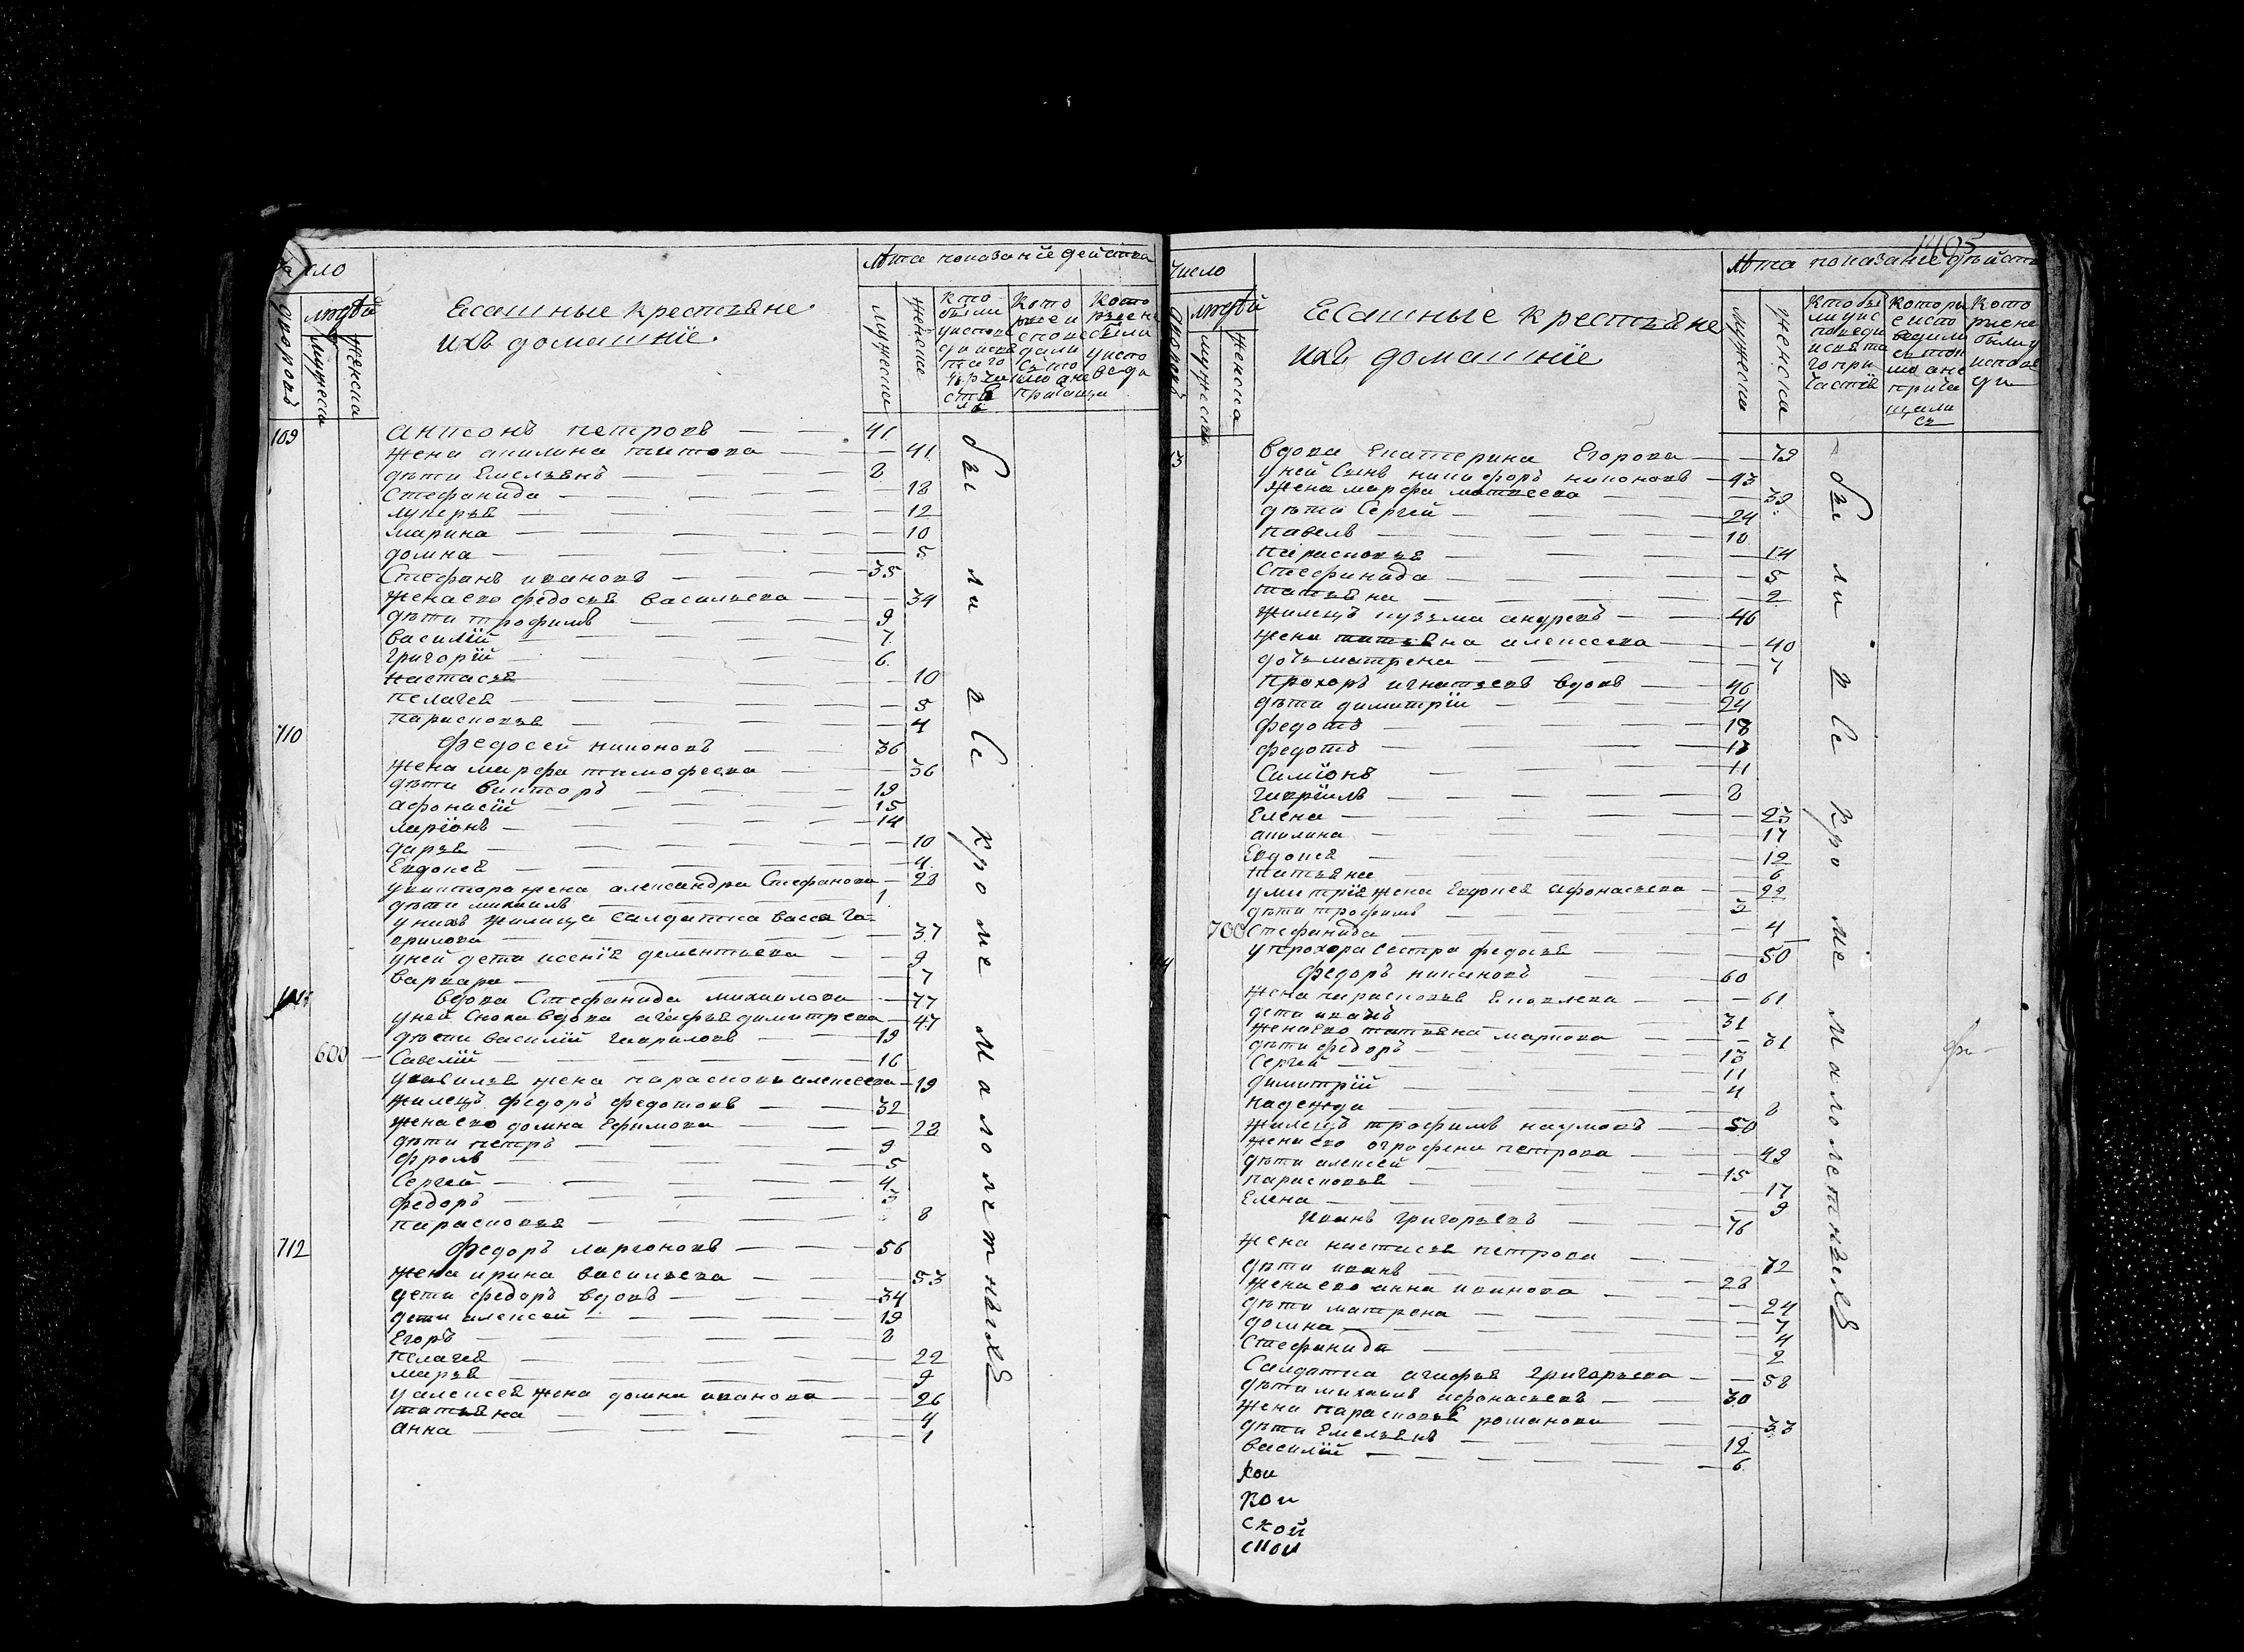 число
лѣта показание действа
дворовъ
людей
мужеска
женска
Есашные крестьяне
ихъ домашнїе
мужеска
женска
109
анисонъ петровъ 41
жена акилина титова 41
дѣти Емельянъ 8
Стефанида 18
лукерья 12
марина 10
домна 5
Стефанъ ивановъ 35
жена ево федосья васильева 34
дѣти трофимъ 9
василїй 7
григорїй 6
настасья 10
пелагея 5
парасковья 4
110
федосей никоновъ 36
жена марфа тимофеева 36
дѣти викторъ 19
афонасїй 15
ларїонъ 14
дарья 10
Евдокея 4
увиктора жена александра Стефанова 28
дѣти михаилъ 1
унихъ жилица салдатка васса га
врилова 37
уней дети ксенїя дементьева 9
варвара 7
вдова Стефанида михаилова 77
уней Сноха вдова агафья димитрева 47
дѣти василїй гавриловъ 19
600
Савелїй 16
увасилья жена парасковья алексеева 19
жилецъ федоръ федотовъ 32
жена ево домна Ефимова 28
дѣти петръ 9
фролъ 5
Сергей 4
федоръ 3
парасковья 8
712
федоръ ларионовъ 56
жена ирина васильева 53
дети федоръ вдовъ 34
дети алексей 19
Егоръ 8
пелагея 22
марья 9
уалексея жена домна иванова 26
татьяна 4
анна 1
были все кроме малолетныхъ
1405
число
лѣта показание дѣйства
людей
мужеска
женска
Есашные крестьяне
ихъ домашнїе
мужеска
женска
вдова Екатерина Егорова 79
уней Сынъ никифоръ никоновъ 43
жена марфа матвеева 39
дѣти Сергей 24
павелъ 10
парасковья 14
Стефанида 5
татьяна 2
жилецъ кузьма андревъ 46
жена татьяна алексеева 40
дочь матрена 7
прохоръ игнатьевъ вдовъ 46
дѣти димитрїй 24
федотъ 18
федотъ 13
Симїонъ 11
гаврїилъ 8
Елена 23
акилина 17
Евдокея 12
татьяна 6
умитрїя жена Евдокея афонасьева 22
дѣти трофимъ 3
700
Стефанида 4
упрохора сестра федосья 50
федоръ никановъ 60
жена парасковья Ековлева 61
дети иванъ 31
жена ево татьяна маркова 31
дѣти федоръ 13
Сергей 11
димитрїй 4
надежда 8
жилецъ трофимъ наумовъ 50
жена ево огрофена петрова 49
дѣти алексей 15
парасковья 17
Елена 9
Иванъ григорьевъ 76
жена настасья петрова 72
дѣти иванъ 28
жена ево анна иванова 24
дѣти матрена 7
домна 4
Стефанида 2
Салдатка агафья григорьева 58
дѣти михаилъ афонасьевъ 30
жена парасковья романова 33
дѣти Емельянъ 12
василїй 6
кои
кои
ской
скои
были все кроме малолетныхъ